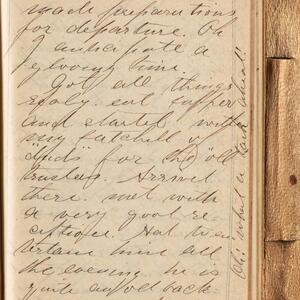 made preparations
for departure. Oh
I anticipate a
glorious time.
Got all things
ready. eat supper
and started with
my satchell of
"duds" for the "old
trusty. Arrived
there. met with
a very good re-
ception. Had to en-
tertain him all
the evening he is
quite an old bach-
Oh! what a